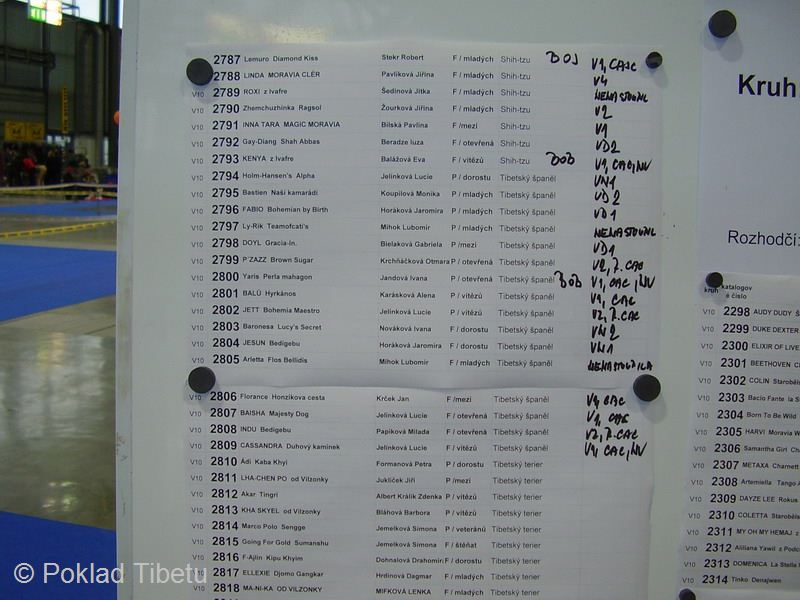 2787 Lemuro Diamond Kiss Stekr Robert F / mladých Shih-tzu BOJ V1, CAJC
2788 LINDA MORAVIA CLÉR Pavlíková Jiřina F / mladých Shih-tzu V4
V10 2789 ROXI z Ivafre Šedinová Jitka F / mladých Shih-tzu NENASTOUPIL
V10 2790 Zhemchuzhinka Ragsol Žourková Jiřina F / mladých Shih-tzu V2
V10 2791 INNA TARA MAGIC MORAVIA Bílská Pavlína F /mezi Shih-tzu V1
V10 2792 Gay-Diang Shah Abbas Beradze Iuza F / otevřená Shih-tzu VD2
V10 2793 KENYA z Ivafre Balážová Eva F / vítězů Shih-tzu BOB V1, CAC, NV
V10 2794 Holm-Hansen's Alpha Jelínková Lucie P / dorostu Tibetský španěl VN1
V10 2795 Bastien Naši kamarádi Koupilová Monika P / mladých Tibetský španěl VD2
V10 2796 FABIO Bohemian by Birth Horáková Jaromíra P / mladých Tibetský španěl VD1
V10 2797 Ly-Rik Teamofcati's Mihok Lubomír P / mladých Tibetský španěl NENASTOUPIL
V10 2798 DOYL Gracia-In. Bielaková Gabriela P /mezi Tibetský španěl VD1
V10 2799 P'ZAZZ Brown Sugar Krchňáčková Otmara P / otevřená Tibetský španěl V2, r.CAC
V10 2800 Yaris Perla mahagon Jandová Ivana P / otevřená Tibetský španěl BOB V1, CAC, NV
V10 2801 BALÚ Hyrkános Karásková Alena P / vítězů Tibetský španěl V1, CAC
V10 2802 JETT Bohemia Maestro Jelínková Lucie P / vítězů Tibetský španěl V2, r.CAC
V10 2803 Baronesa Lucy's Secret Nováková Ivana F / dorostu Tibetský španěl VN2
V10 2804 JESUN Bedigebu Horáková Jaromíra F / dorostu Tibetský španěl VN1
V10 2805 Arletta Flos Bellidis Mihok Lubomír F / mladých Tibetský španěl NENASTOUPILA
V10 2806 Florance Honzíkova cesta Krček Jan F /mezi Tibetský španěl V1, CAC
V10 2807 BAISHA Majesty Dog Jelínková Lucie F / otevřená Tibetský španěl V1, CAC
V10 2808 INDU Bedigebu Papíková Milada F / otevřená Tibetský španěl V2, r.CAC
V10 2809 CASSANDRA Duhový kamínek Jelínková Lucie F / vítězů Tibetský španěl V1, CAC, NV
V10 2810 Ádi Kaba Khyi Formanová Petra P / dorostu Tibetský terier
V10 2811 LHA-CHEN PO od Vilzonky Juklíček Jiří P /mezi Tibetský terier
V10 2812 Akar Tingri Albert Králík Zdenka P / vítězů Tibetský terier
V10 2813 KHA SKYEL od Vilzonky Bláhová Barbora P / vítězů Tibetský terier
V10 2814 Marco Polo Sengge Jemelková Simona P / veteránů Tibetský terier
V10 2815 Going For Gold Sumanshu Jemelková Simona F / štěňat Tibetský terier
V10 2816 F-Ajlin Kipu Khyim Dohnalová Drahomír F / dorostu Tibetský terier
V10 2817 ELLEXIE Djomo Gangkar Hrdinová Dagmar F / mladých Tibetský terier
V10 2818 MA-NI-KA OD VILZONKY MIFKOVÁ LENKA F / mladých Tibetský terier
Kruh
Rozhodčí:
kruh katalogov
é číslo
V10 2298 AUDY DUDY
V10 2299 DUKE DEXTER
V10 2300 ELIXIR OF LIVE
V10 2301 BEETHOVEN
V10 2302 COLIN Staroběls
V10 2303 Bacio Fante la S
V10 2304 Born To Be Wild
V10 2305 HARVI Moravia W
V10 2306 Samantha Girl Ch
V10 2307 METAXA Charnett
V10 2308 Artemiella Tango
V10 2309 DAYZE LEE Rokus
V10 2310 COLETTA Staroběls
V10 2311 MY OH MY HEMAJ z
V10 2312 Alliiana Yawil z Podč
V10 2313 DOMENICA La Stella
V10 2314 Tinko Denajwen
© Poklad Tibetu